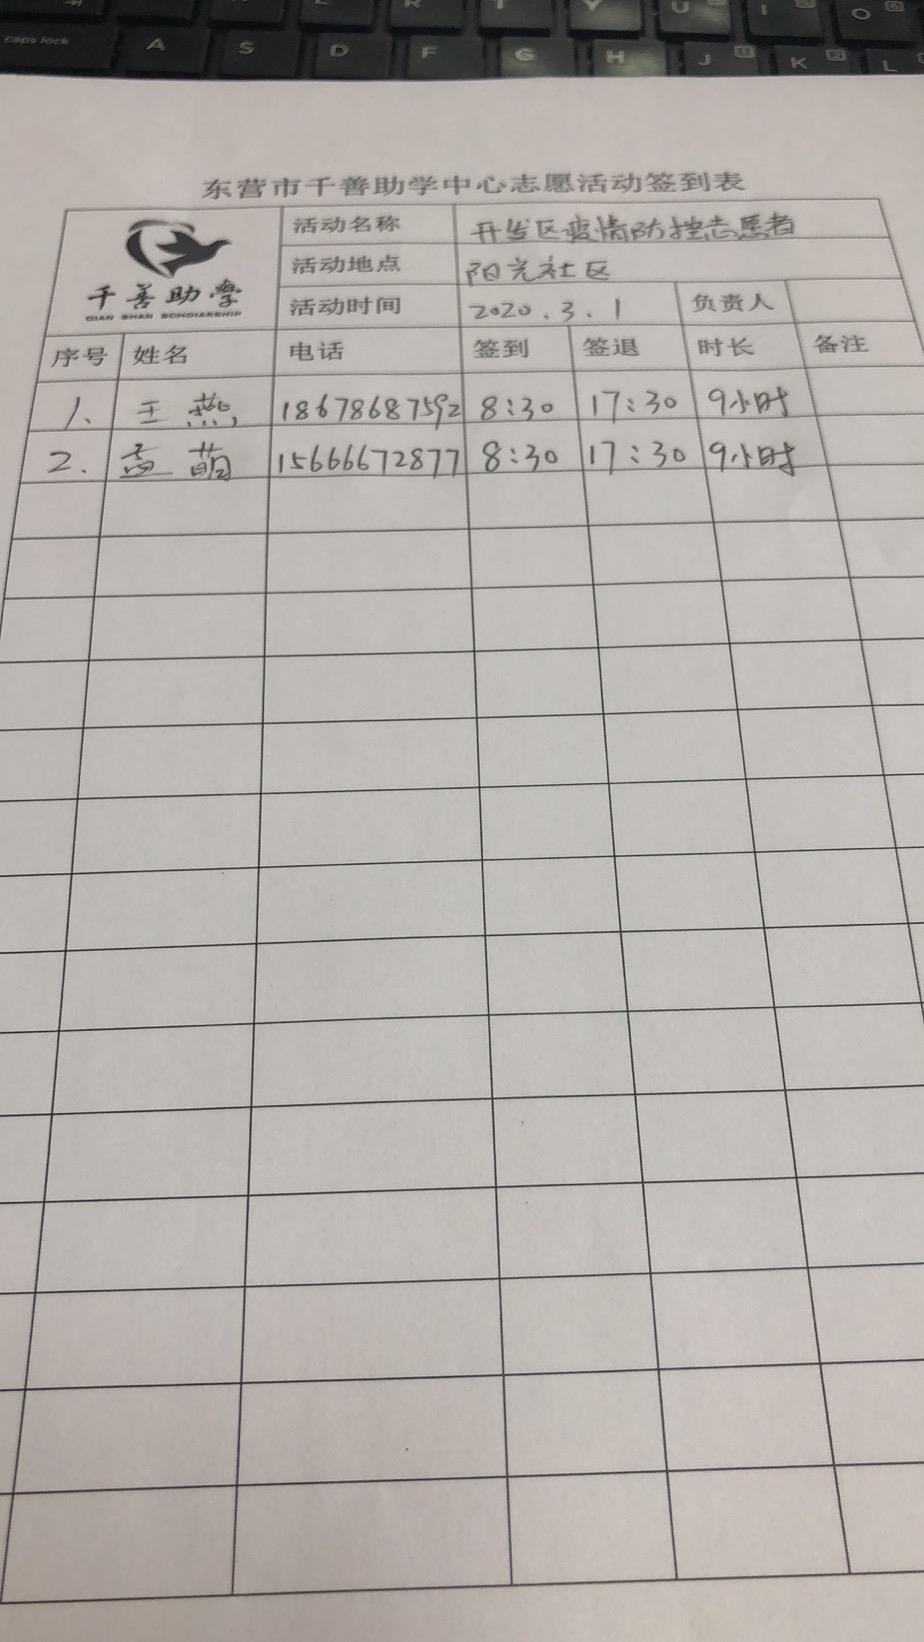 R T Y U I O
caps lock A S D F G H J K L
东营市千善助学中心志愿活动签到表
千善助学
QIAN SHAN SCHOLARSHIP
活动名称 开发区疫情防控志愿者
活动地点 阳光社区
活动时间 2020.3.1 负责人
序号 姓名 电话 签到 签退 时长 备注
1. 王燕 18678687592 8:30 17:30 9小时
2. 孟萌 15666672877 8:30 17:30 9小时